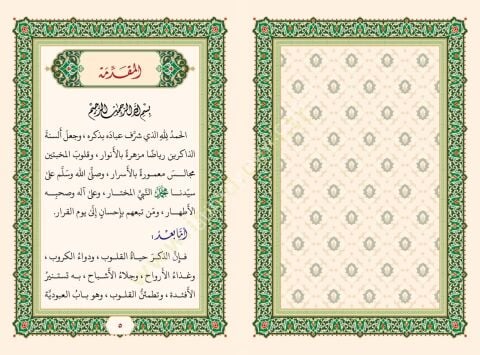 المقدّمة
بسم الله الرحمن الرحيم
الحمدُ لِلَّهِ الذي شرَّف عبادَه بذكره ، وجعلَ ألسنةَ
الذاكرين رياضًا مزهرةً بالأنوار ، وقلوبَ المخبتين
مجالسَ معمورةً بالأسرار ، وصلَّى الله وسلَّم على
سيّدنا محمّد النَّبيِّ المختار ، وعلى آله وصحبِه
الأطهار ، ومَن تبعهم بإحسانٍ إلى يوم القرار.
أمّا بعد :
فإنَّ الذكرَ حياةُ القلوب ، ودواءُ الكروب ،
وغذاءُ الأرواح ، وجلاءُ الأشباح ، به تستنيرُ
الأفئدة ، وتطمئنُّ القلوب ، وهو بابُ العبوديَّة
٥